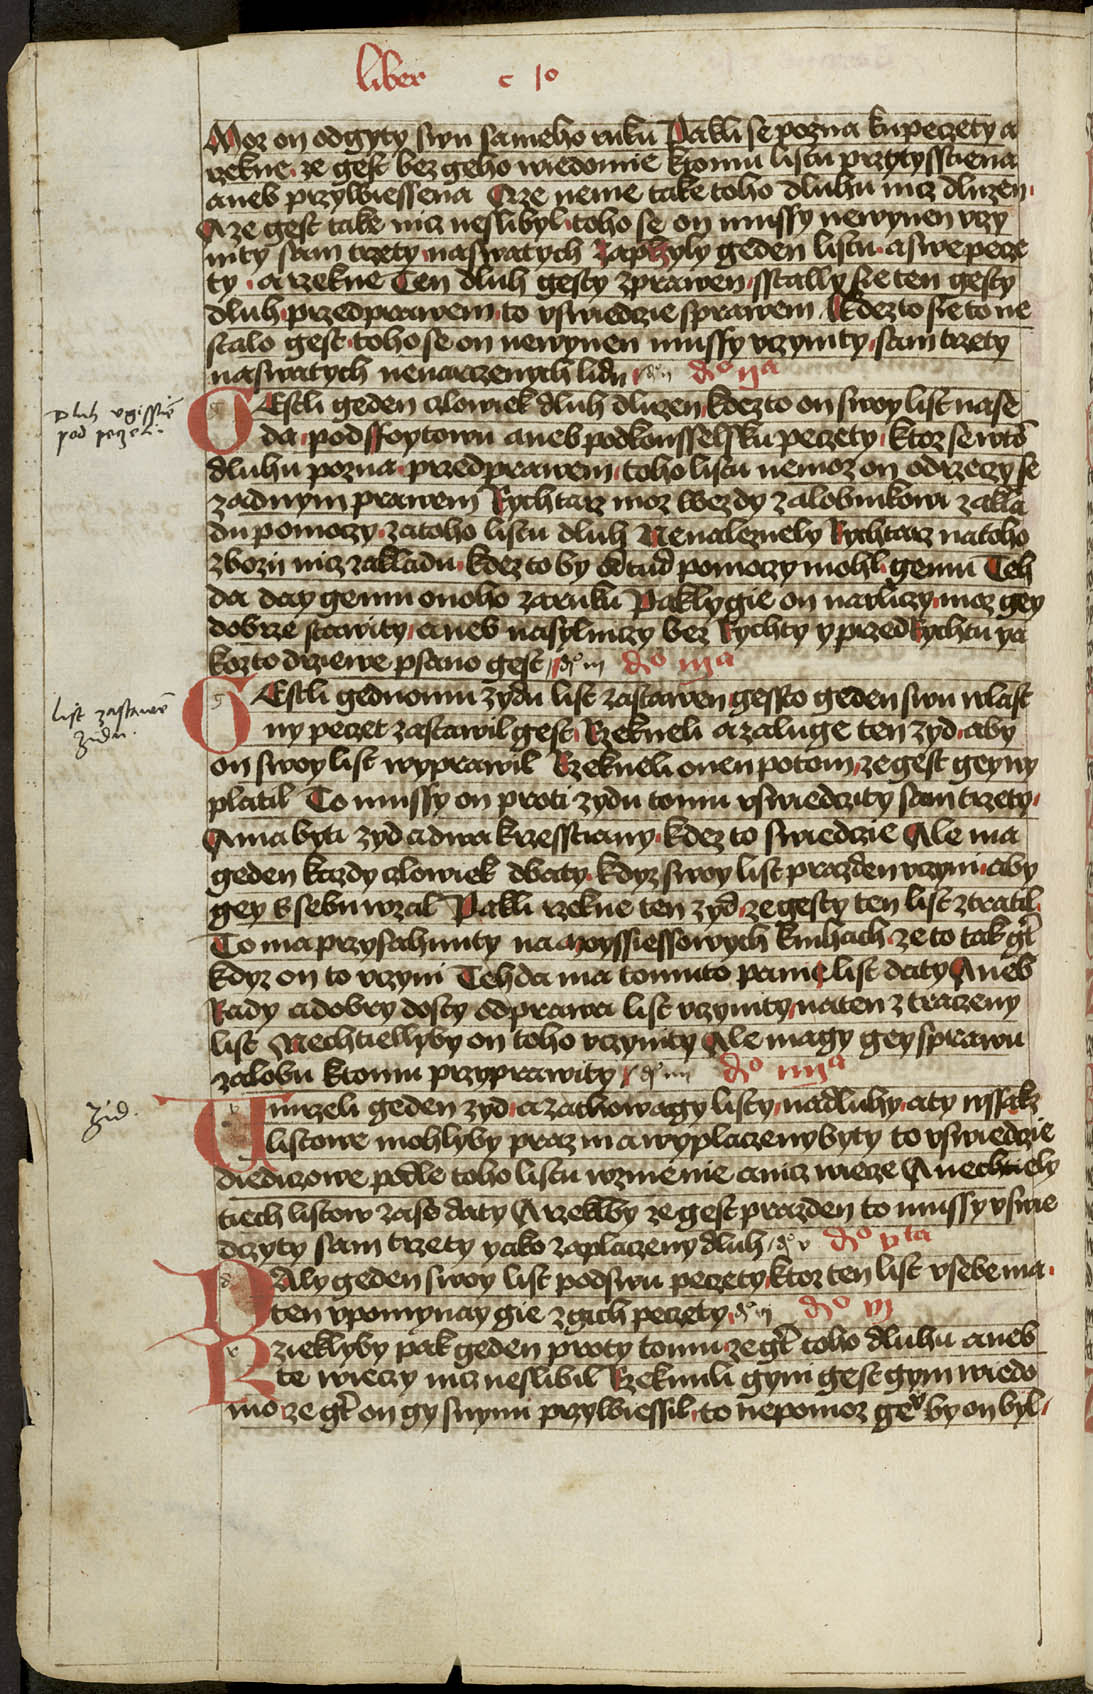 liber c 1º
Moz on odgyty swu sameho ruku Pakli se pozna ku peczety a
rzekne ze gest bez geho wiedomie k tomu listu przytysstiena
aneb przywiessena A ze neme take toho dluhu nicz dluzen
A ze gest take nicz neslibyl toho se on mussy newynen vczy
nity sam trzety na swatych Zaphyly geden listu a swe pecze
ty a rzekne Ten dluh gesty zprawen sstally sie ten gesty
dluh przed prawem to vswiedczie s prawem Kdezto sie to ne
stalo gest toho se on newynen mussy vczynity sam trzety
na swatych nenarczenych lidu dº ii dº iiª
Dluh vgisstie
pod peczeti
GEstli geden czlowiek dluh dluzen kdezto on swoy list na se
da pod ffoytowu aneb pod konsselsku peczety ktoz se w to
dluhu pozna przed prawem toho listu nemoz on odrzeczy se
zadnym prawem Rychtarz moz wezdy zalobnikowi zakla
du pomoczy za toho listu dluh Nenaleznely Rychtarz na toho
zbozii nicz zakladu kdezto by odtud pomoczy mohl gemu Teh
da day gemu onoho za ruku Pakly gie on narliczy moz gey
dobrze stawity aneb nasylniczy bez Rychty y przed Rychtu ya
kozto drziewe psano gest dº iii dº iiiª
list zastawe
Zidu.
GEstli gednomu zydu list zastawen gessto geden swu wlast
ny peczet zastawil gest Rzekneli a zaluge ten zyd aby
on swoy list wyprawil Rzekneli onen potom ze gest geyny
platil To mussy on proti zydu tomu vswiedczity sam trzety
A ma byti zyd a dwa krzesstiany kdezto swiedczie Ale ma
geden kazdy czlowiek dbaty kdyz swoy list prazden vczyni aby
gey k sebu wzal Pakli rzekne ten zyd ze gesty ten list ztratil
To ma przysahnuty na Moyssiessowych knihach ze to tak gt
kdyz on to vczyni Tehda ma tomuto panu list daty Aneb
Rady a dobry dosty odprawa list vczynity na ten ztraczeny
list Nechtiellyby on toho vczynity Ale magy gey sprawu
zalobu k tomu przyprawity dº iiii dº iiiiª
Zid.
Umrzeli geden zyd a zachowagy listy na dluhy a ty wssak
listowe mohlyby prazni a wyplaczeny byty to vswiedczie
diediczowe podle toho listu wzmenie a nicz wiecze A nechtiely
tiech listow zase daty A rzeklby ze gest prazden to mussy vswie
dczyty sam trzety yako zaplaczeny dluh dº v dº vta
DAly geden swoy list pod swu peczety ktoz ten list v sebe ma
ten vpomynay gie z gich peczety dº vi dº vi
Rzieklyby pak geden proty tomu ze gt toho dluhu aneb
te wieczy nicz neslibil Rzekuuli gym gest gym wiedo
mo ze gt on gy s nymi przywiessil to nepomoz geº by on byl